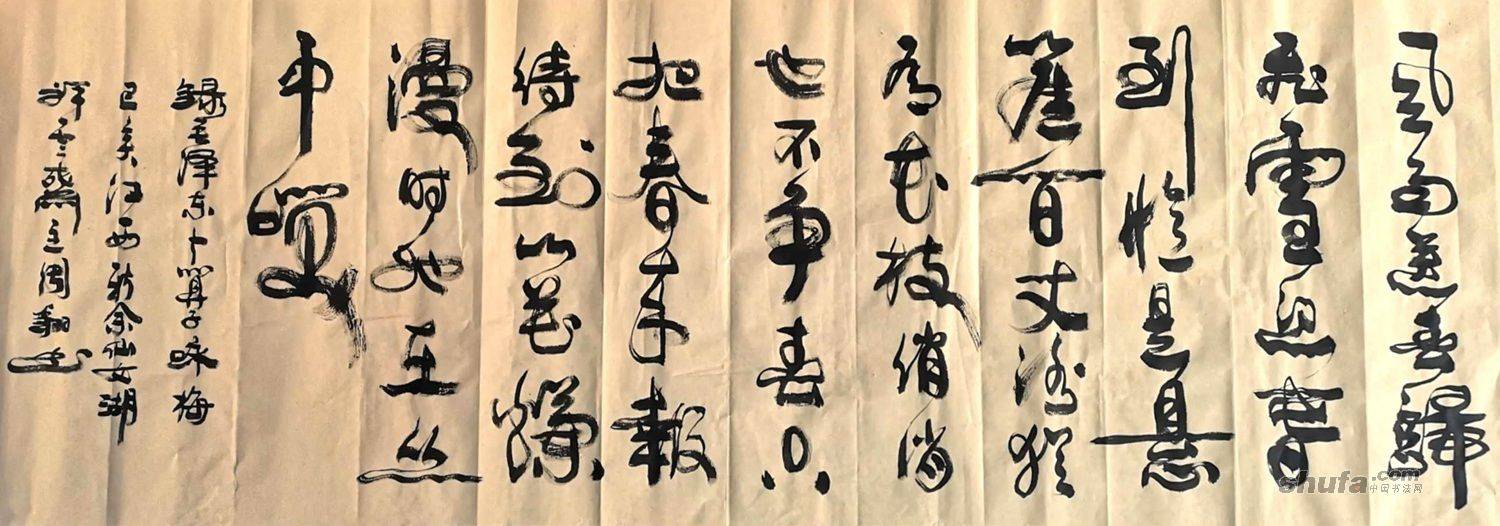 风雨送春歸
飛雪迎春
到是悬
崖百丈冰犹
有花枝俏俏
也不争春只
把春来報
待到山花爛
漫时她在丛
中笑
録毛泽东卜算子咏梅
己亥江西新余仙女湖
祥云主周翔书
shufa.com
中国书法网